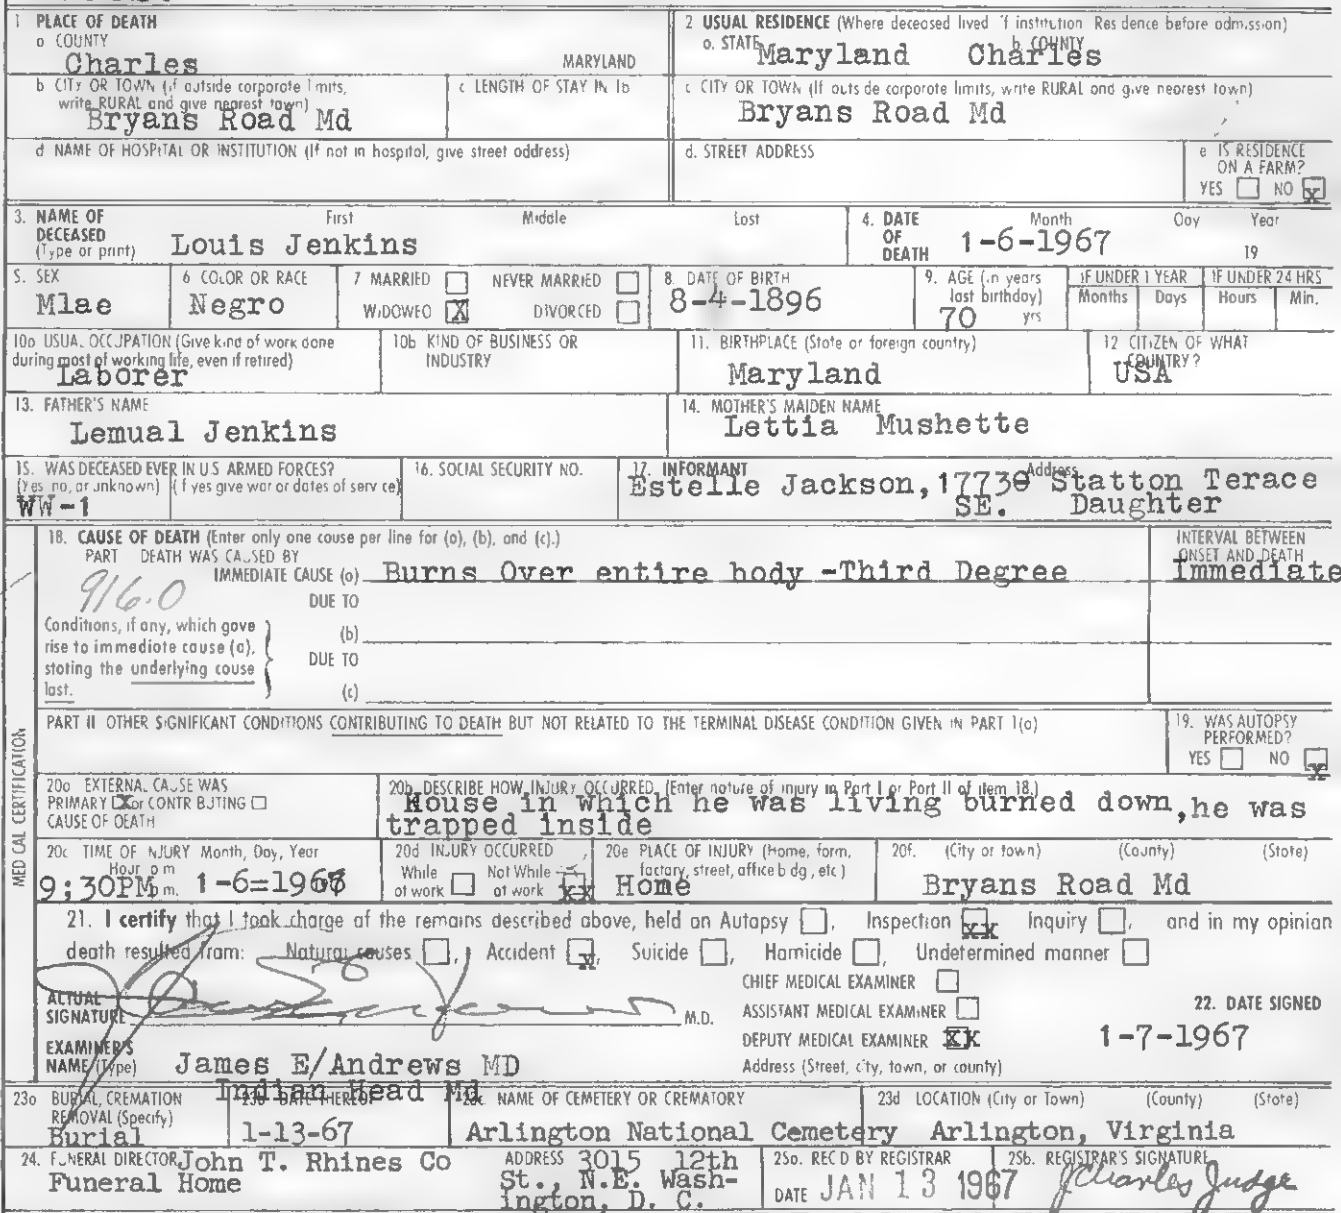 1 PLACE OF DEATH
a COUNTY
Charles
MARYLAND
2 USUAL RESIDENCE (Where deceased lived if institution Residence before admission)
a. STATE Maryland b COUNTY Charles
b CITY OR TOWN (if outside corporate limits, write RURAL and give nearest town)
Bryans Road Md
c LENGTH OF STAY IN 1b
c CITY OR TOWN (If outside corporate limits, write RURAL and give nearest town)
Bryans Road Md
d NAME OF HOSPITAL OR INSTITUTION (If not in hospital, give street address)
d. STREET ADDRESS
e IS RESIDENCE ON A FARM?
YES NO X
3. NAME OF DECEASED (Type or print)
First Middle Last
Louis Jenkins
4. DATE OF DEATH
Month Day Year
1-6-1967 19
5. SEX
Mlae
6 COLOR OR RACE
Negro
7 MARRIED NEVER MARRIED
WIDOWED X DIVORCED
8. DATE OF BIRTH
8-4-1896
9. AGE (in years last birthday)
70 yrs
IF UNDER 1 YEAR
Months Days
IF UNDER 24 HRS
Hours Min.
10a USUAL OCCUPATION (Give kind of work done during most of working life, even if retired)
Laborer
10b KIND OF BUSINESS OR INDUSTRY
11. BIRTHPLACE (State or foreign country)
Maryland
12 CITIZEN OF WHAT COUNTRY?
USA
13. FATHER'S NAME
Lemual Jenkins
14. MOTHER'S MAIDEN NAME
Lettia Mushette
15. WAS DECEASED EVER IN U.S ARMED FORCES?
(Yes no, or unknown) (If yes give war or dates of service)
WW-1
16. SOCIAL SECURITY NO.
17. INFORMANT Address
Estelle Jackson, Statton Terace
SE. Daughter
MEDICAL CERTIFICATION
18. CAUSE OF DEATH (Enter only one cause per line for (a), (b), and (c).)
PART DEATH WAS CAUSED BY
IMMEDIATE CAUSE (a) Burns Over entire body -Third Degree
INTERVAL BETWEEN ONSET AND DEATH
Immediate
916.0
DUE TO
Conditions, if any, which gave rise to immediate cause (a), stating the underlying cause last.
(b)
DUE TO
(c)
PART II OTHER SIGNIFICANT CONDITIONS CONTRIBUTING TO DEATH BUT NOT RELATED TO THE TERMINAL DISEASE CONDITION GIVEN IN PART 1(a)
19. WAS AUTOPSY PERFORMED?
YES NO X
20a EXTERNAL CAUSE WAS
PRIMARY X or CONTRIBUTING
CAUSE OF DEATH
20b. DESCRIBE HOW INJURY OCCURRED (Enter nature of injury in Part I or Part II of item 18.)
House in which he was living burned down, he was
trapped inside
20c TIME OF INJURY Month, Day, Year
Hour a m p m.
9;30PM 1-6=1967
20d INJURY OCCURRED
While at work Not While at work XX
20e PLACE OF INJURY (Home, farm, factory, street, office bldg, etc)
Home
20f. (City or town) (County) (State)
Bryans Road Md
21. I certify that I took charge of the remains described above, held an Autopsy , Inspection XX Inquiry , and in my opinion
death resulted from: Natural causes , Accident X, Suicide , Homicide , Undetermined manner
CHIEF MEDICAL EXAMINER
ACTUAL SIGNATURE M.D.
ASSISTANT MEDICAL EXAMINER
22. DATE SIGNED
DEPUTY MEDICAL EXAMINER XX
1-7-1967
EXAMINER'S NAME (Type)
James E/Andrews MD
Indian Head Md
Address (Street, city, town, or county)
23a BURIAL, CREMATION REMOVAL (Specify)
Burial
23b DATE THEREOF
1-13-67
23c NAME OF CEMETERY OR CREMATORY
Arlington National Cemetery
23d LOCATION (City or Town) (County) (State)
Arlington, Virginia
24. FUNERAL DIRECTOR John T. Rhines Co
Funeral Home
ADDRESS 3015 12th
St., N.E. Wash-
ington, D. C.
25a. REC'D BY REGISTRAR
DATE JAN 13 1967
25b. REGISTRAR'S SIGNATURE
J Charles Judge